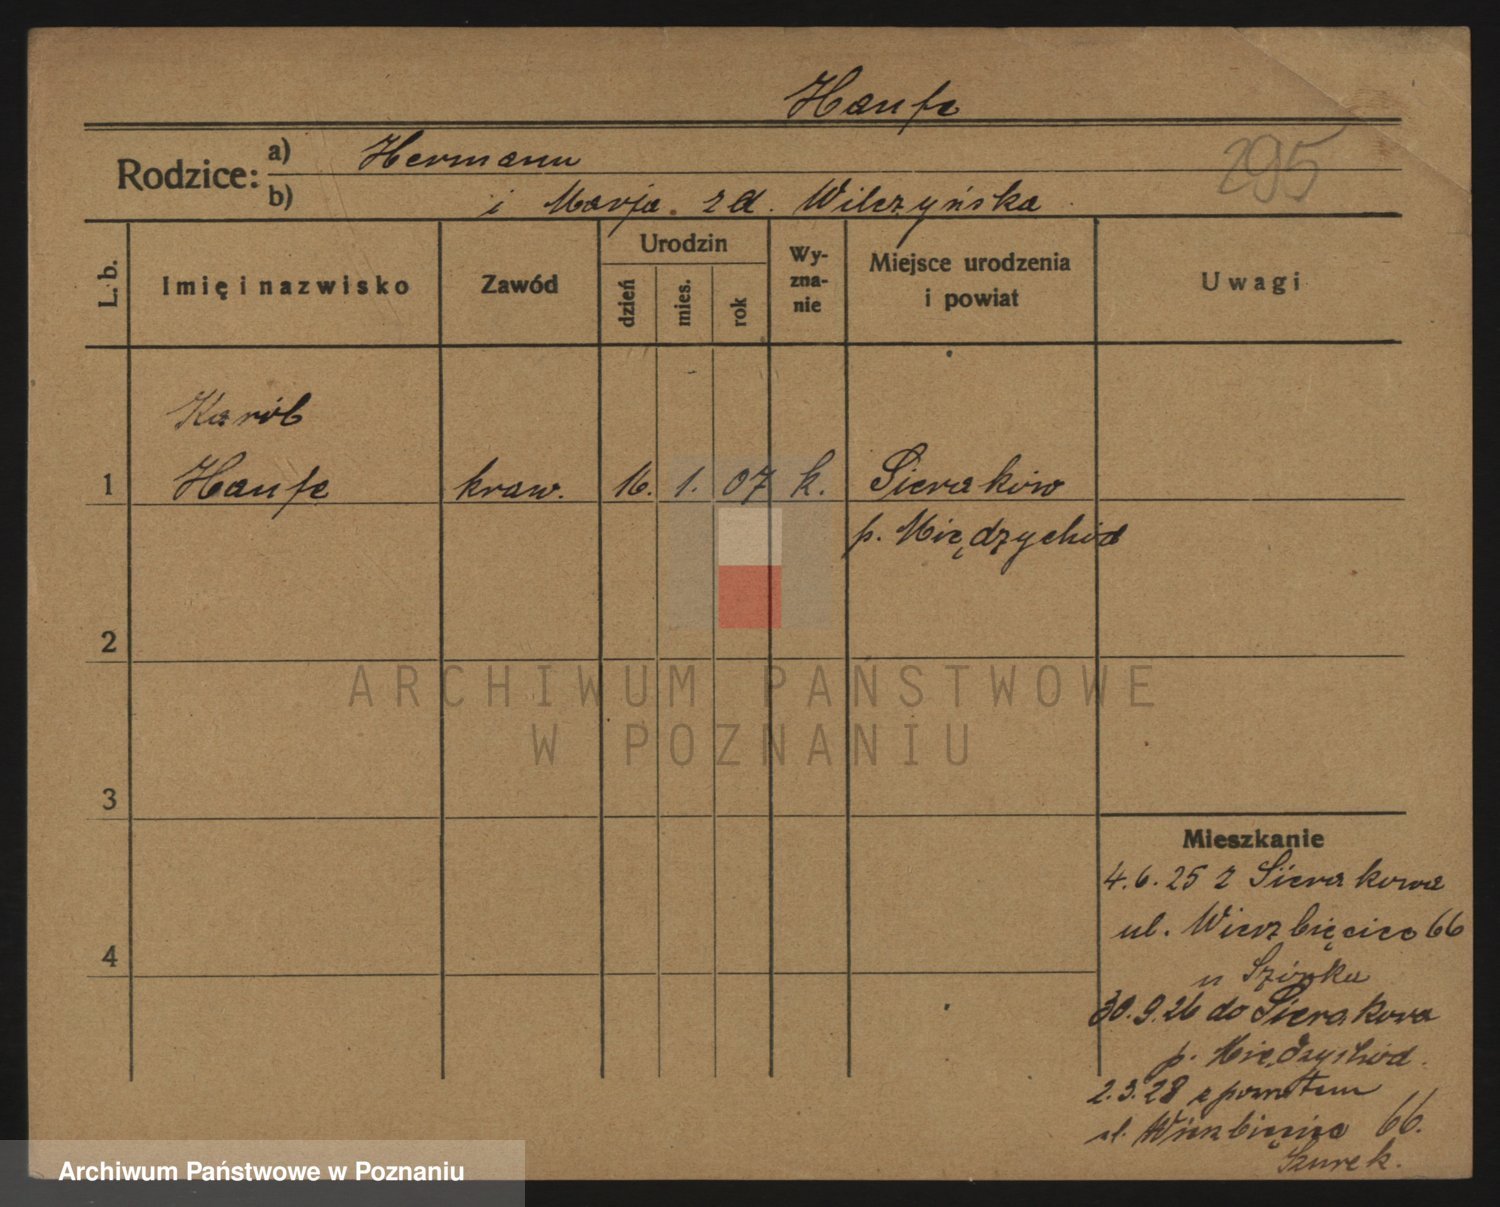 Haufe
295
Rodzice: a) Hermann
b) i Marja zd. Wilczyńska
L. b. Imię i nazwisko Zawód Urodzin dzień mies. rok Wyznanie Miejsce urodzenia i powiat Uwagi
Karól
1 Haufe kraw. 16. 1. 07 k. Sieraków
p. Międzychód
2
ARCHIWUM PAŃSTWOWE
W POZNANIU
3
Mieszkanie
4.6.25 z Sierakowa
ul. Wierzbięcice 66
u
4
30.9.26 do Sierakowa
p. Międzychód.
2.3.28 z powrotem
ul. Wierzbięcice 66.
Szurek.
Archiwum Państwowe w Poznaniu